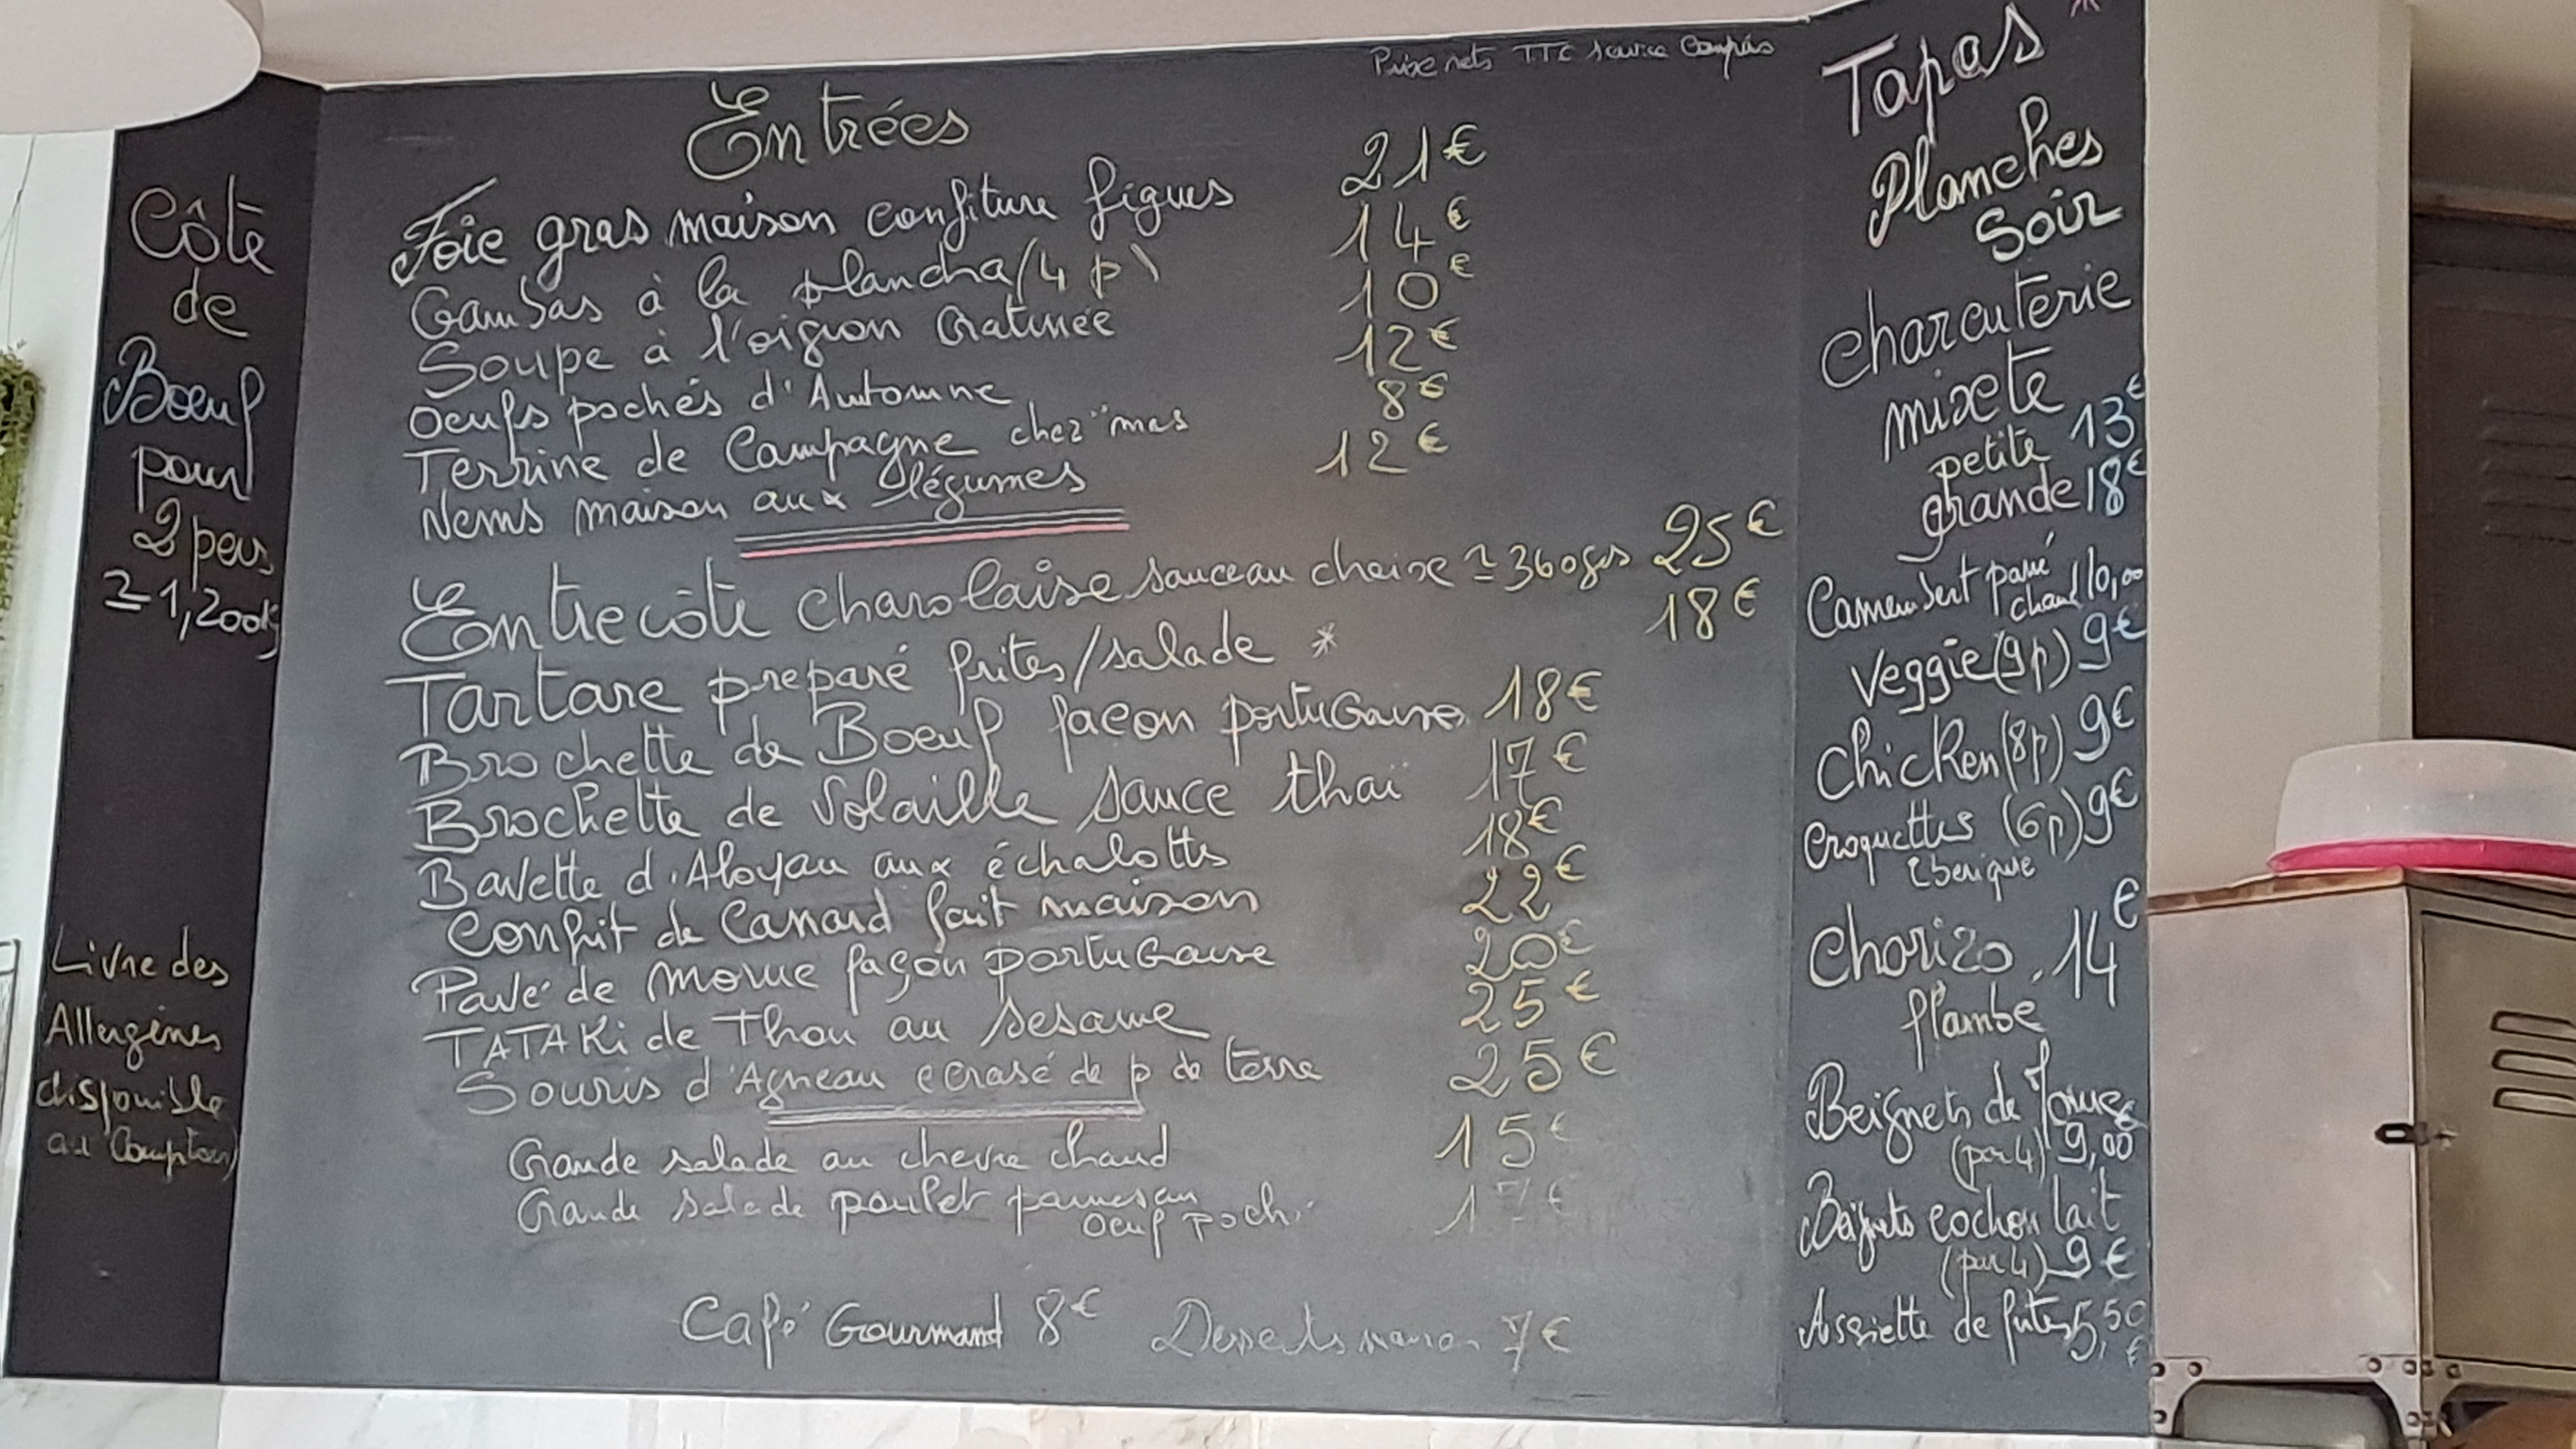 Côte
de
Boeuf
pour
2 pers
≃ 1,200k
Livre des
Allergènes
disponible
au Comptoir
Prix nets TTC service Compris
Entrées
Foie gras maison confiture figues 21€
Gambas à la plancha (4 p) 14€
Soupe à l'oignon Gratinée 10€
Oeufs pochés d'Automne 12€
Terrine de Campagne chez mas 8€
Nems maison aux légumes 12€
Entrecôte charolaise sauce au choix ≃ 360grs 25€
Tartare preparé frites/salade * 18€
Brochette de Boeuf façon portuGaise 18€
Brochette de Volaille sauce thaï 17€
Bavette d'Aloyau aux échalottes 18€
Confit de Canard fait maison 22€
Pavé de morue façon portuGaise 20€
TATAKi de Thon au sesame 25€
Souris d'Agneau ecrasé de p de terre 25€
Grande salade au chevre chaud 15€
Grande salade poulet parmesan
oeuf poché
Café Gourmand 8€ Desserts maison 7€
Tapas *
Planches
Soir
charcuterie
mixete
petite 13€
grande 18€
Camembert pané
chaud 10,00
Veggie (9p) 9€
Chicken (8p) 9€
Croquettes (6p) 9€
Iberique
Chorizo 14€
flambé
Beignets de Morue
(par 4) 9,00
Beignets cochon lait
(par 4) 9€
Assiette de frites 5,50
€